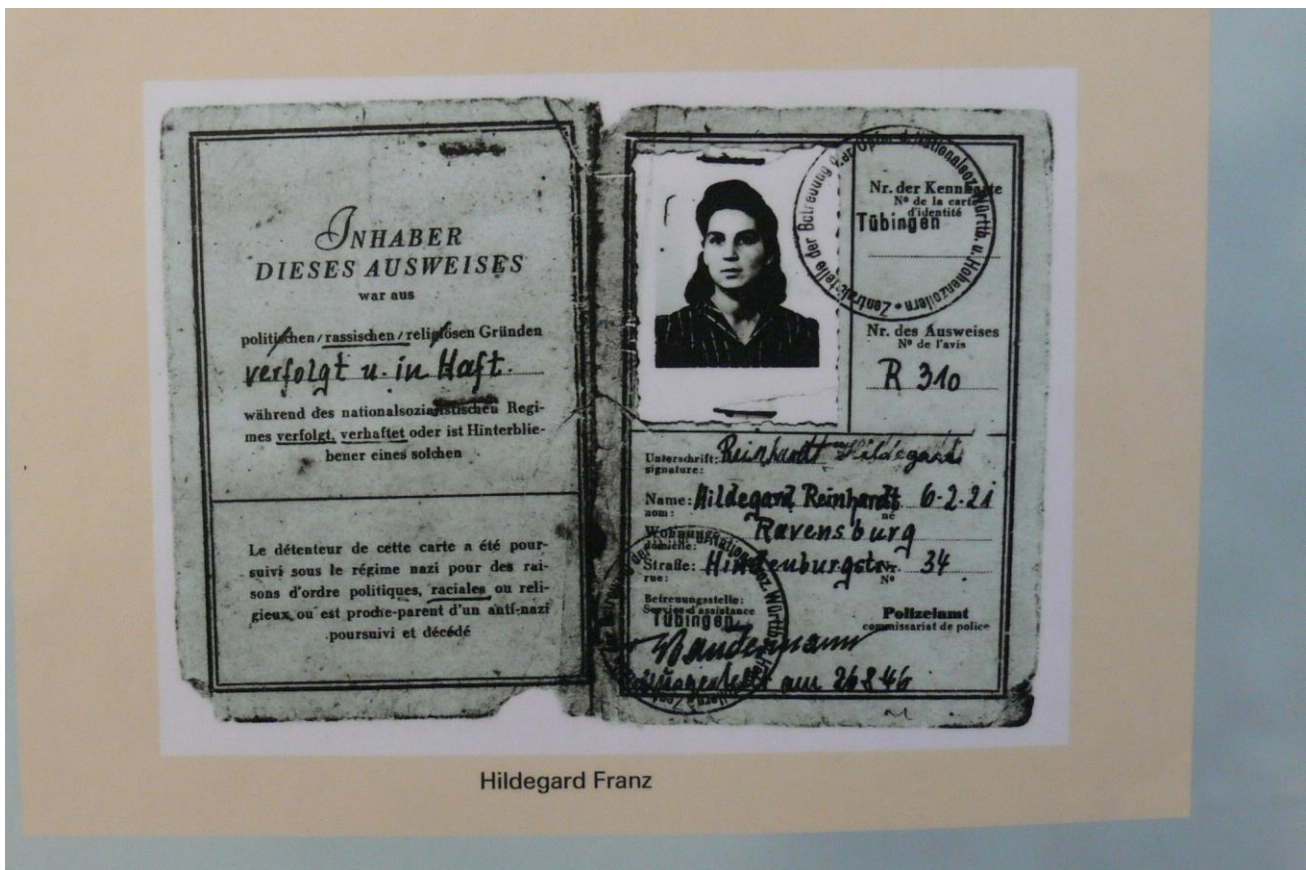 INHABER
DIESES AUSWEISES
war aus
politischen / rassischen / religiösen Gründen
verfolgt u. in Haft.
während des nationalsozialistischen Regi-
mes verfolgt, verhaftet oder ist Hinterblie-
bener eines solchen
Le détenteur de cette carte a été pour-
suivi sous le régime nazi pour des rai-
sons d'ordre politiques, raciales ou reli-
gieux ou est proche-parent d'un anti-nazi
poursuivi et décédé
Zentralstelle der Betreuung d. Opfer d. Nationalsoz. Württb. u. Hohenzollern
Tübingen
Nr. der Kennkarte
Nº de la carte
d'identité
Nr. des Ausweises
Nº de l'avis
R 310
Unterschrift: Reinhardt Hildegard
signature:
Name: Hildegard Reinhardt 6-2-21
nom: né
Wohnung: Ravensburg
domicile:
Straße: Hindenburgstr. Nr. 34
rue: Nº
Betreuungsstelle:
Service d'assistance
Tübingen
Polizeiamt
commissariat de police
ausgestellt am 26 8 46
Hildegard Franz